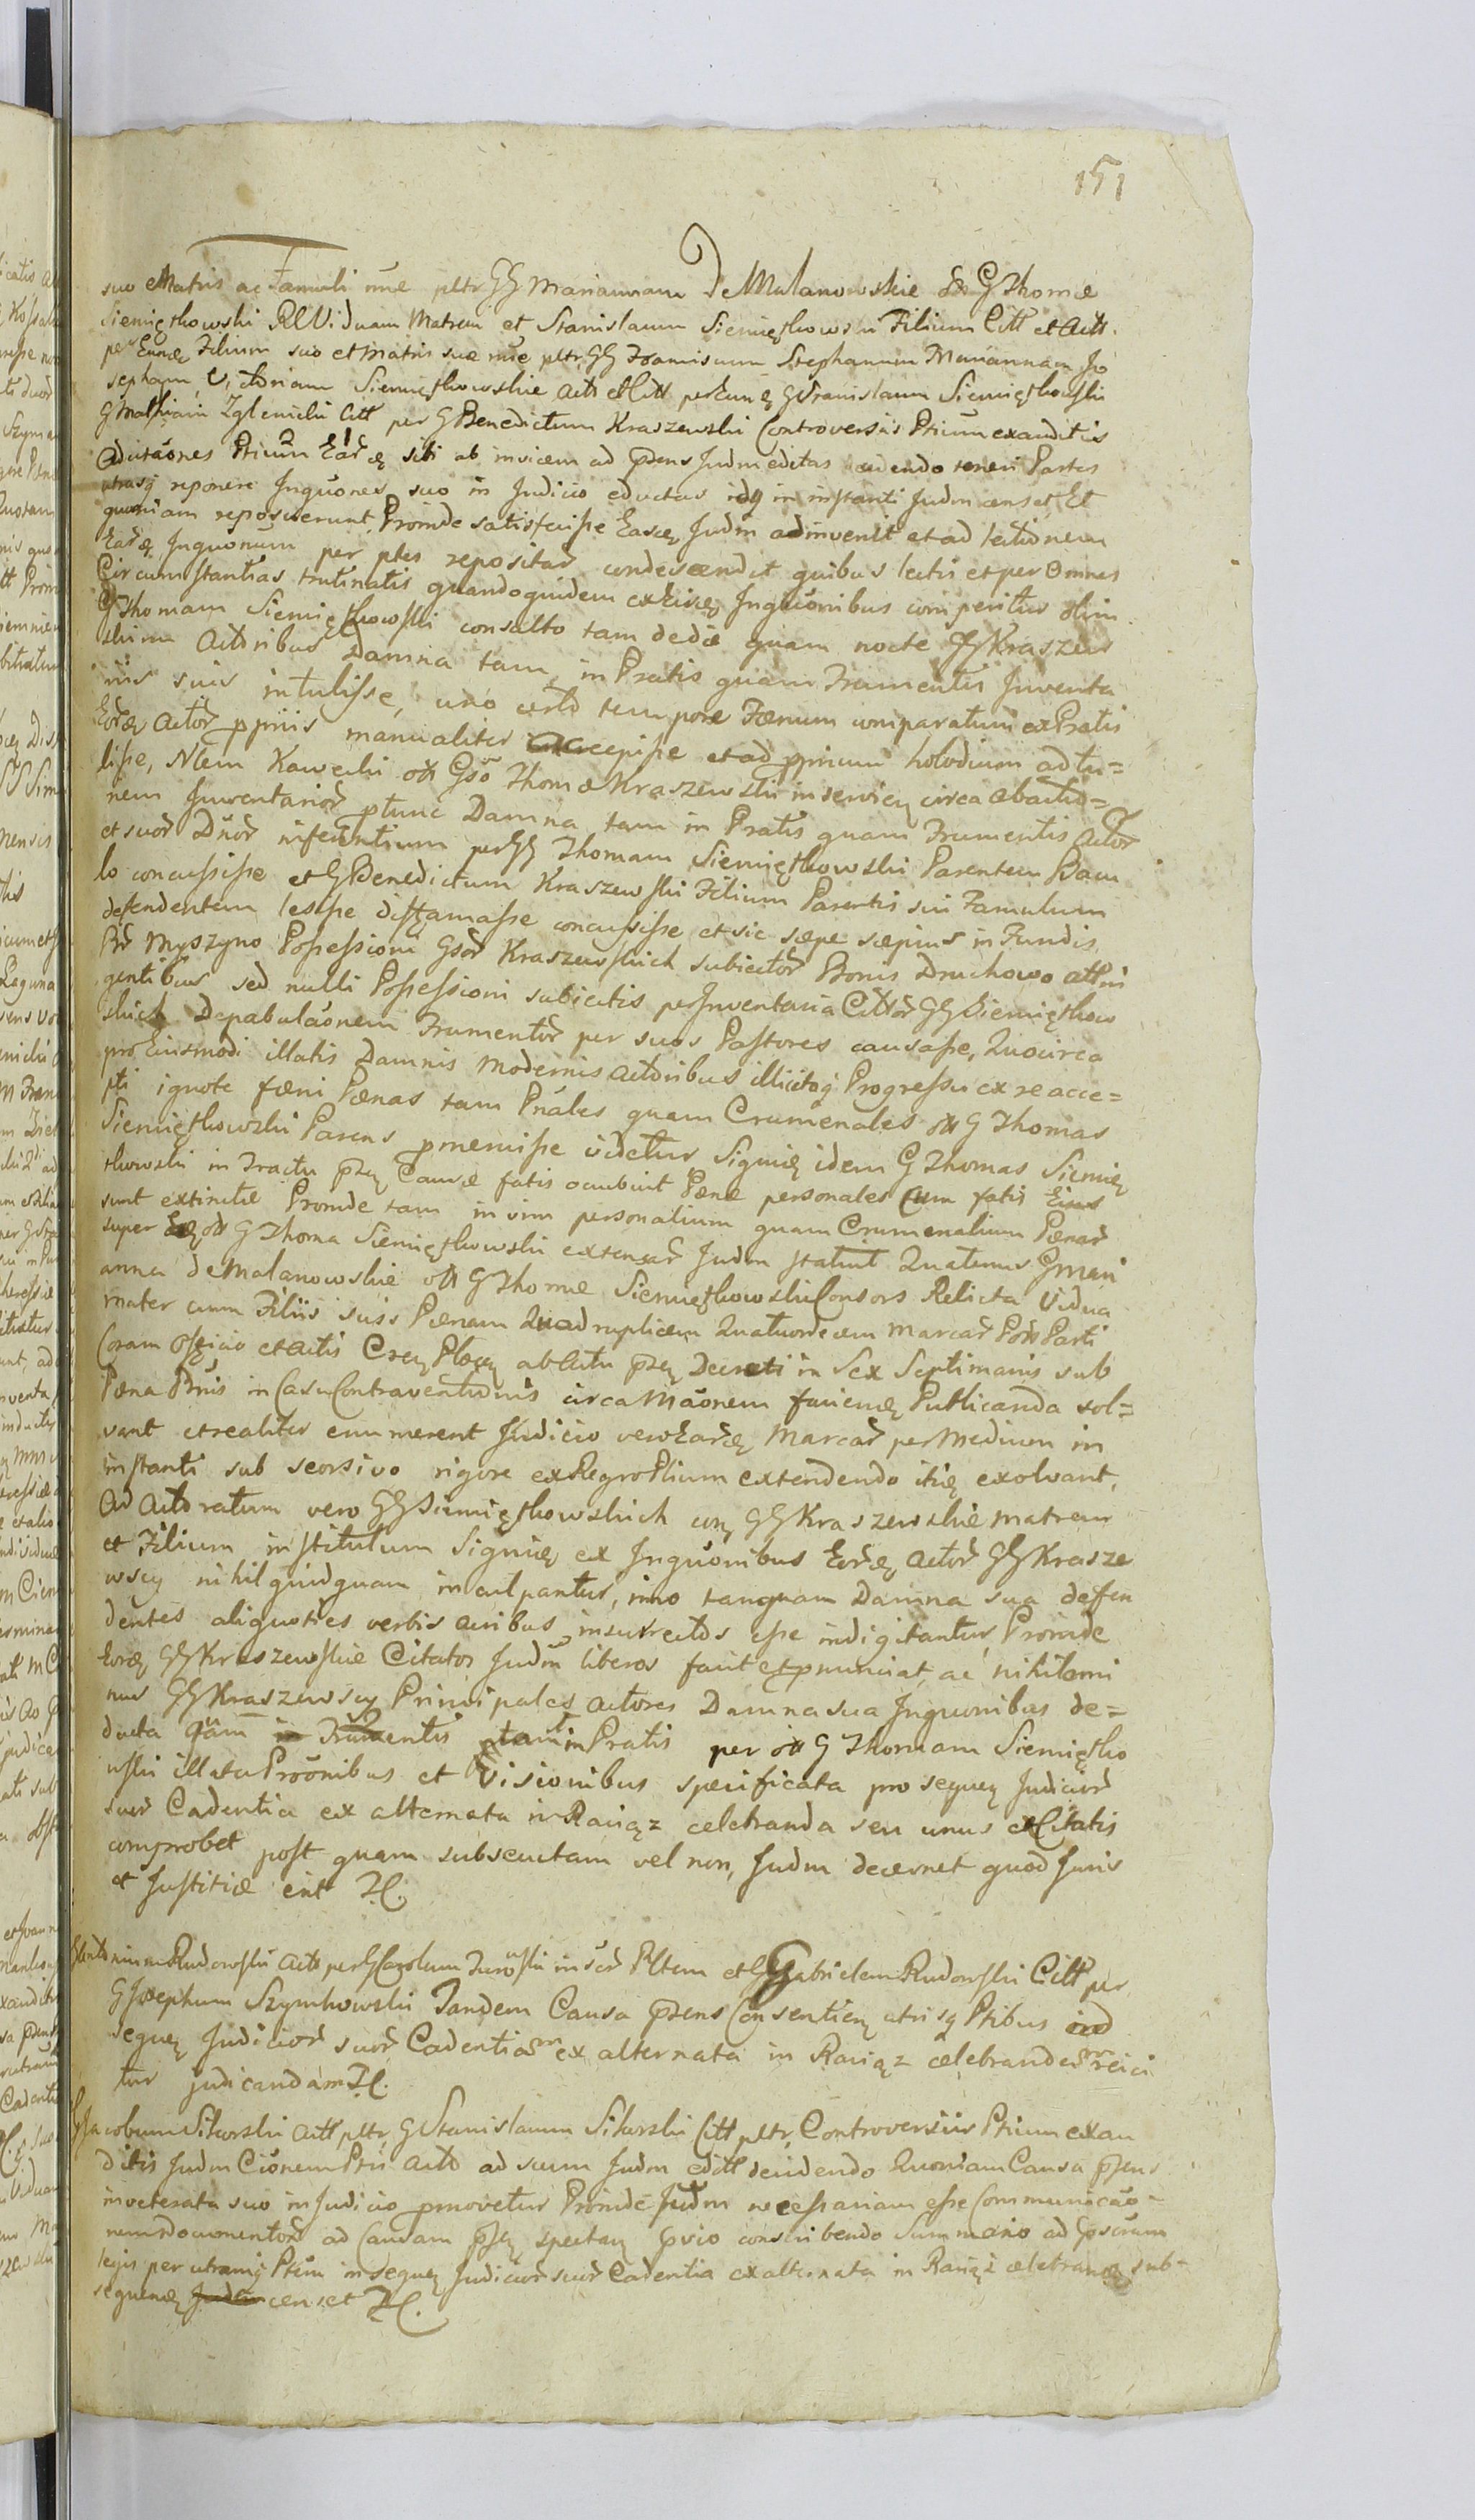 151
suo et Matris ac Famuli nne pltr GG Mariannam De Malanowskie olt G Thomæ
Siemiątkowski Rel Viduam Matrem et Stanislaum Siemiątkowski Filium Citt et Actt.
per Eundę Filium suo et Matris suæ nne pltr, GG Franciscum Stephanum Mariannam Jo
sepham Victoriam Siemiątkowskie Actt et Citt per Eundę G Stanislaum Siemiątkowski
G Mathiam Zglenicki Citt per G Benedictum Kraszewski Controversiis Ptium exauditis
Adcitaõnes Ptium Earę sibi ab invicem ad p̃sens Judm editas cudendo teneri Partes
utrasq reponere Inquõnes suo in Judicio eductas idq in instanti Judm censet Et
quoniam reposuerunt Proinde satisfecisse Easdę Judm adinvenit et ad lectionem
Earę Inquõnum per ptes repositar̃ condescendit quibus lectis et per Omnes
Circumstantias trutinatis quandoquidem ex Eisdę Inquõnibus comperitur olim
G Thomam Siemiątkowski consulto tam de die quam nocte GG Kraszew
skim Actoribus Damna tam in Pratis quam Frumentis Inventa
riis suis intulisse, uno certo tempore Fœnum comparatum ex Pratis
Eorę Actor̃ ppriis manualiter accepisse et ad pprium holodium adtu=
lisse, Nlem Kawecki olt Gso Thomæ Kraszewski inservien circa abactio=
nem Inventarior̃ ptunc Damna tam in Pratis quam Frumentis Actor̃
et suor̃ Dnor̃ inferentium per GG Thomam Siemiątkowski Parentem Bacu
lo concussisse et G Benedictum Kraszewski Filium Parentis sui Famulum
defendentem lesisse diffamasse concussisse et sic sæpe sæpius in Fundis
Br̃ Myszyno Possessioni Gsor̃ Kraszewskich subiector̃ Bonis Druchowo attin
gentibus sed nulli Possessioni subiectis per Inventaria Cittor̃ GG Siemiątkow
skich Depabulaõnem Frumentor̃ per suos Pastores causasse, Quocirca
pro Eiusmodi illatis Damnis Modernis Actoribus illicitoq Progressu ex re acce=
pti ignote fœni Pœnas tam Pñales quam Crumenales olt G Thomas
Siemiątkowski Parens pmeruisse videtur Signię idem G Thomas Siemią
tkowski in Tractu p̃sę Causæ fatis occubuit Pœnæ personales cum fatis Eius
sunt extinctæ Proinde tam in vim personalium quam Crumenalium Pœnar̃
super olt G Thoma Siemiątkowski extensar̃ Judm statuit Quatenus G Mari
anna de Malanowskie olt G Thomæ Siemiątkowski Consors Relicta Vidua
mater cum Filiis suis Pœnam Quadruplicem Quatuordecem Marcar̃ Parti
Coram Officio et Actis Ab Actu p̃sę Decreti in Sex Septimanis sub
Pœna Bñis in Casu Contraventionis circa Maõnem faciendę Publicanda sol=
vant et realiter enumerent Judicio vero Earę Marcar̃ per Medium in
instanti sub seorsivo rigore ex Regro Plium extendendo exolvant.
Ad Actoratum vero GG Siemiątkowskich con GG Kraszewskie matrem
et Filium institutum Signię ex Inquõnibus Eorę Actor̃ GG Krasze
wscy nihil quidquam inculpantur, imo tanquam Damna sua defen
dentes aliquoties verbis acribus insurrectos esse indigitantur Proinde
Eorę GG Kraszewskie Citatos Judm liberos facit et pnunciat, ac nihilomi
nus GG Kraszewscy Principales Actores Damna sua Inquõnibus de=
ducta qũam in Frumentis tam in Pratis per olt G Thomam Siemiątko
wski illata Proõnibus et Visionibus specificata pro seqnę Judicior̃
suor̃ Cadentia ex alternata in Raciąz celebranda seu unus ex Citatis
comprobet post quam subsecutam vel non, Judm decernet quod Juris
et Justitiæ erit H.
G Antonium Rudowski Actt per G Carolum Turowski Pltem et G Gabrielem Rudowski Citt per
G Josephum Szymkowski Tandem Causa p̃sens Consentien utrisq Ptibus ad
seqnę Judicior̃ suor̃ Cadentiam ex alternata in Raciąz celebrandam reici
tur judicandam H.
G Jacobum Sikorski Actt pltr, G Stanislaum Sikorski Citt pltr, Controversiis Ptium exau
ditis Judm Ciõnem Ptis Actt ad suum Judm editt decidendo Quoniam Causa p̃sens
inveterata suo in Judicio pmovetur Proinde Judm necessariam esse Communicaõ=
nem documentor̃ ad Causam p̃sę spectan p̃vio conscribendo Summario ad
legis per utramq Ptem in seqnę Judicior̃ suor̃ Cadentia ex alternata in Raciąz celebranda sub=
sequendę Judm censet H.